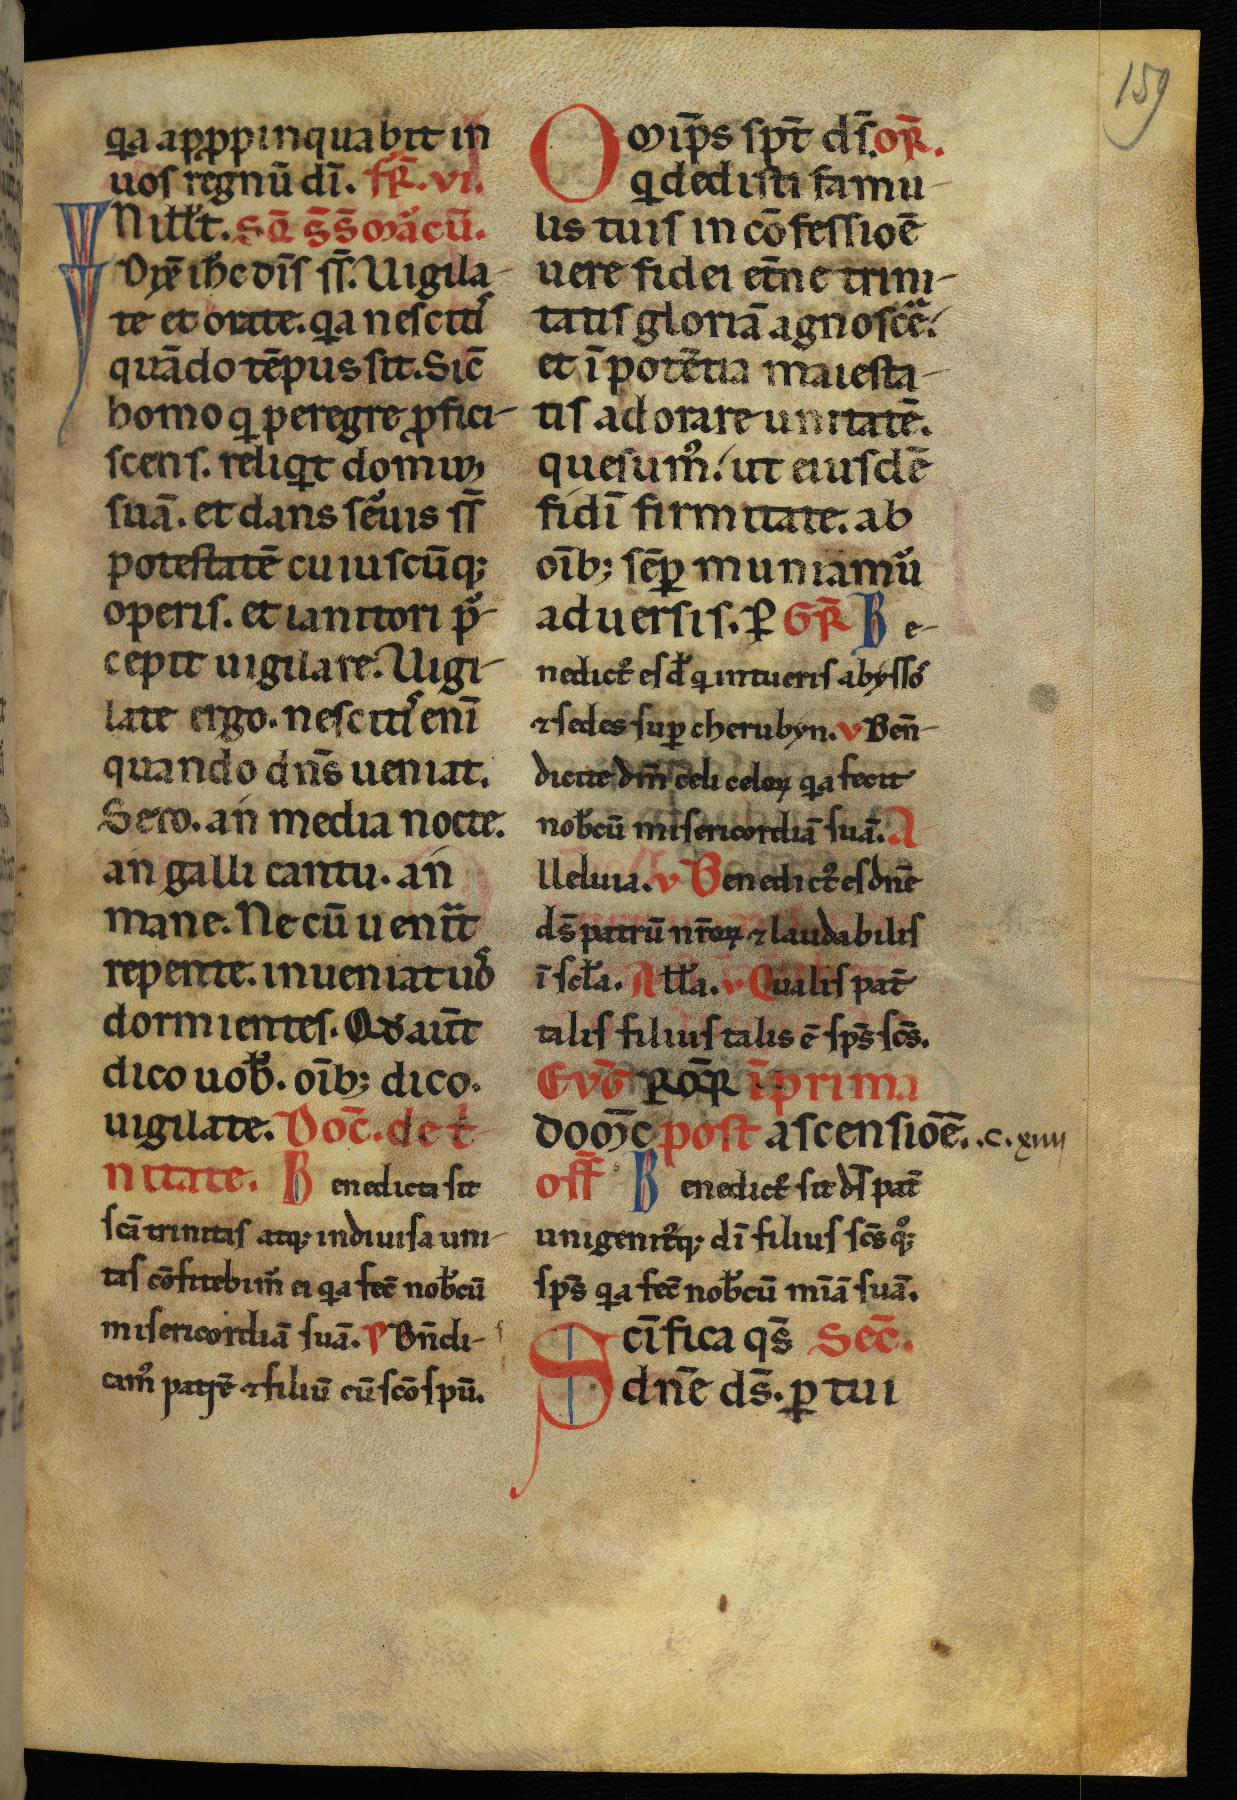 159
qa apppinquabit in
uos regnū dī. fr̄. vi.
In ill't. Sc̄d̄ s̄s̄ marcū.
Dix̄ ih̄c dīs s̄s̄. Uigila-
te et orate. qa nesciti᷒
quādo tēpus sit. Sic̄
homo q peregre p̄fici-
scens. reliqt domum
suā. et dans seruis s̄s̄
potestatē cuiuscūq;
operis. et ianitori p̄-
cepit uigilare. Uigi-
late ergo. nesciti᷒ enī
quando dn̄s ueniat.
Sero. an media nocte.
an galli cantu. an
mane. Ne cū uenit
repente. inueniat uo᷒
dormientes. Qd aūt
dico uob̄. oīb; dico.
uigilate. Doc̄. de t
nitate. Benedicta sit
sc̄a trinitas atq; indiuisa uni-
tas cōfitebim᷒ ei qa fec̄ nob̄cū
misericordiā suā. P Bn̄di-
cam᷒ patrē ⁊ filiū cū sc̄o spū.
Omīps sp̄t ds̄. or̄.
q dedisti famu-
lis tuis in cōfessioē
uere fidei et̄ne trini-
tatis gloriā agnoscē.
et ī potētia maiesta-
tis adorare unitatē.
quesum᷒. ut eiusdē
fidī firmitate. ab
oīb; sēp muniamu᷒
aduersis. P Gr̄ Be-
nedict᷒ es d̄ q intueris abyssos
⁊ sedes sup cherubyn. v Ben̄-
dicite dm̄ celi celoꝝ qa fecit
nob̄cū misericordiā suā. A
lleluia. v Benedict᷒ es dn̄e
ds̄ patrū nr̄oꝝ ⁊ laudabilis
ī scl̄a. All̄a. v Qualis pat̄
talis filius talis ē sps̄ sc̄s.
Evḡ īprima
domc̄ post ascensioē. .c. xiiii
off̄ Benedict᷒ sit ds̄ pat̄
unigenit᷒q; dī filius sc̄s q᷒;
sps̄ qa fec̄ nob̄cū mīā suā.
Scīfica qs̄ Sec̄.
dn̄e ds̄. p tui